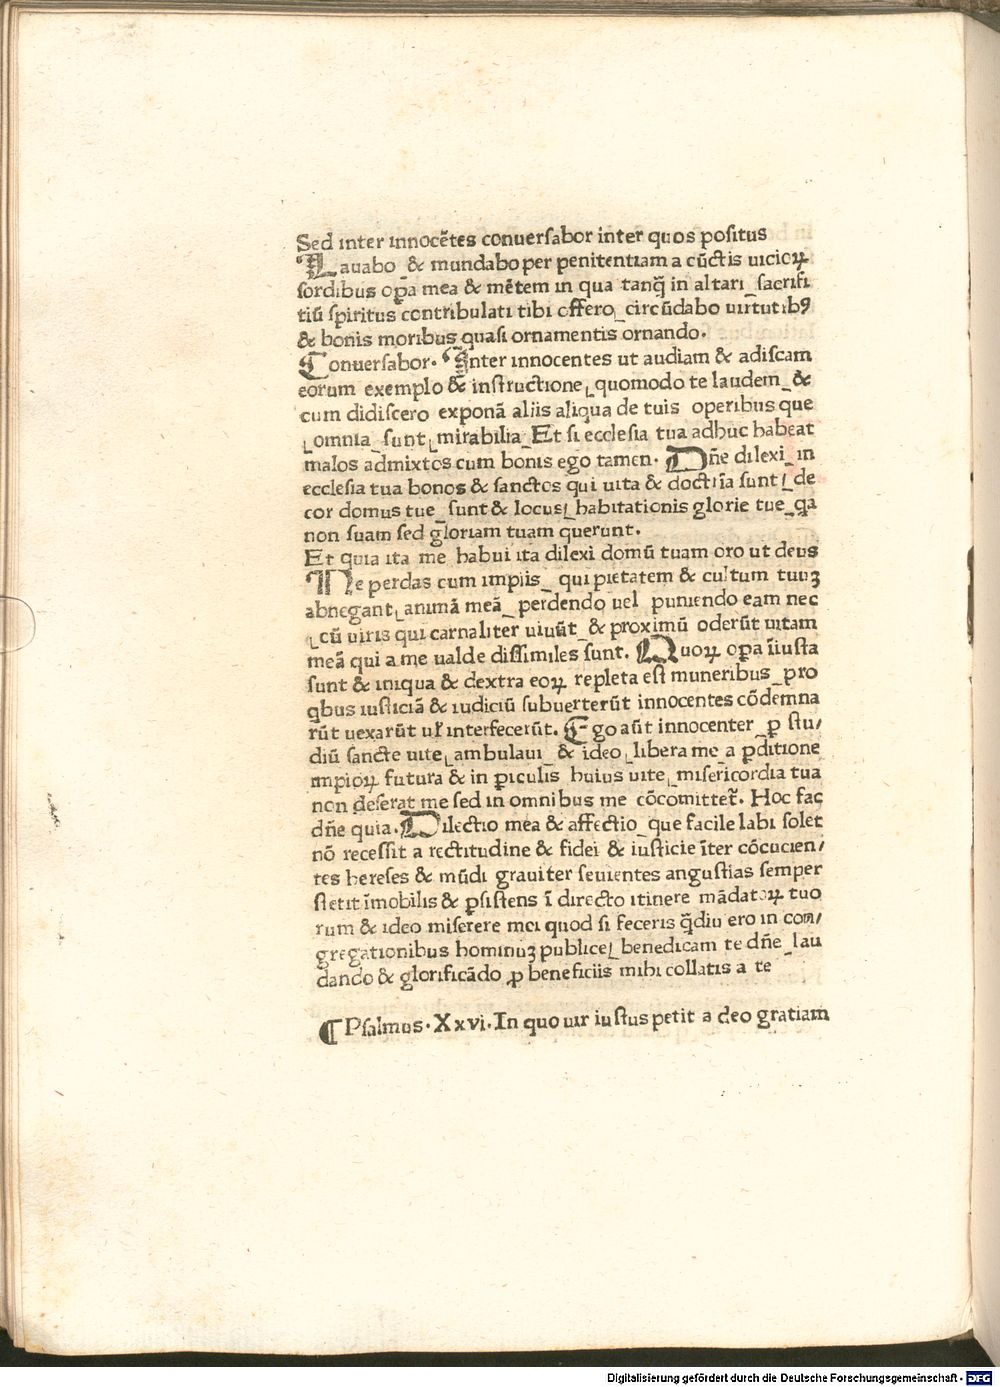 Sed inter innocẽtes conuerſabor inter quos poſitus
Lauabo & mundabo per penitentiam a cũctis uicioꝝ
ſordibus oꝑa mea & mẽtem in qua tanq̃ in altari ſacrifi
tiũ ſpiritus contribulati tibi offero circũdabo uirtutibꝰ
& bonis moribus quaſi ornamentis ornando.
Conuerſabor. Inter innocentes ut audiam & adiſcam
eorum exemplo & inſtructione quomodo te laudem &
cum didiſcero exponã aliis aliqua de tuis operibus que
omnia ſunt mirabilia Et ſi eccleſia tua adhuc habeat
malos admixtos cum bonis ego tamen. Dñe dilexi in
eccleſia tua bonos & ſanctos qui uita & doctrĩa ſunt de
cor domus tue ſunt & locus habitationis glorie tue qa
non ſuam sed gloriam tuam querunt.
Et quia ita me habui ita dilexi domũ tuam oro ut deus
Ne perdas cum impiis qui pietatem & cultum tuuꝫ
abnegant animã meã perdendo uel puniendo eam nec
cũ uiris qui carnaliter uiuũt & proximũ oderũt uitam
meã qui a me ualde diſſimiles ſunt. Quoꝝ oꝑa ĩiuſta
ſunt & iniqua & dextra eoꝝ repleta eſt muneribus pro
qbus iuſticiã & iudiciũ ſubuerterũt innocentes cõdemna
rũt uexarũt uł interfecerũt. Ego aũt innocenter ꝓ ſtu/
diũ ſancte uite ambulaui & ideo libera me a ꝑditione
impioꝝ futura & in ꝑiculis huius uite miſericordia tua
non deſerat me sed in omnibus me cõcomittet̃. Hoc fac
dñe quia. Dilectio mea & affectio que facile labi ſolet
nõ receſſit a rectitudine & fidei & iuſticie ĩter cõcucien/
tes hereſes & mũdi grauiter ſeuientes anguſtias ſemper
ſtetit ĩmobilis & ꝑſiſtens ĩ directo itinere mãdatoꝝ tuo
rum & ideo miſerere mei quod ſi feceris q̃diu ero in con/
gregationibus hominuꝫ publice benedicam te dñe lau
dando & glorificãdo ꝓ beneficiis mihi collatis a te
¶ Psalmus. Xxvi. In quo uir iuſtus petit a deo gratiam
Digitalisierung gefördert durch die Deutsche Forschungsgemeinschaft - DFG